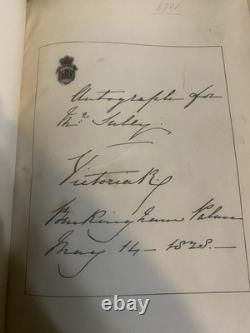 8701
Autograph for
Mr. Sully.
Victoria R.
Buckingham Palace
May 14 - 1838.